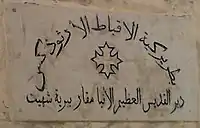 بطريركية الاقباط الارثوذكس
دير القديس العظيم الانبا مقار ببرية شهيت